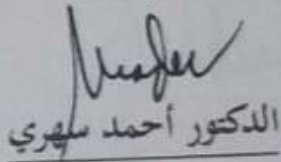 الدكتور أحمد سهري